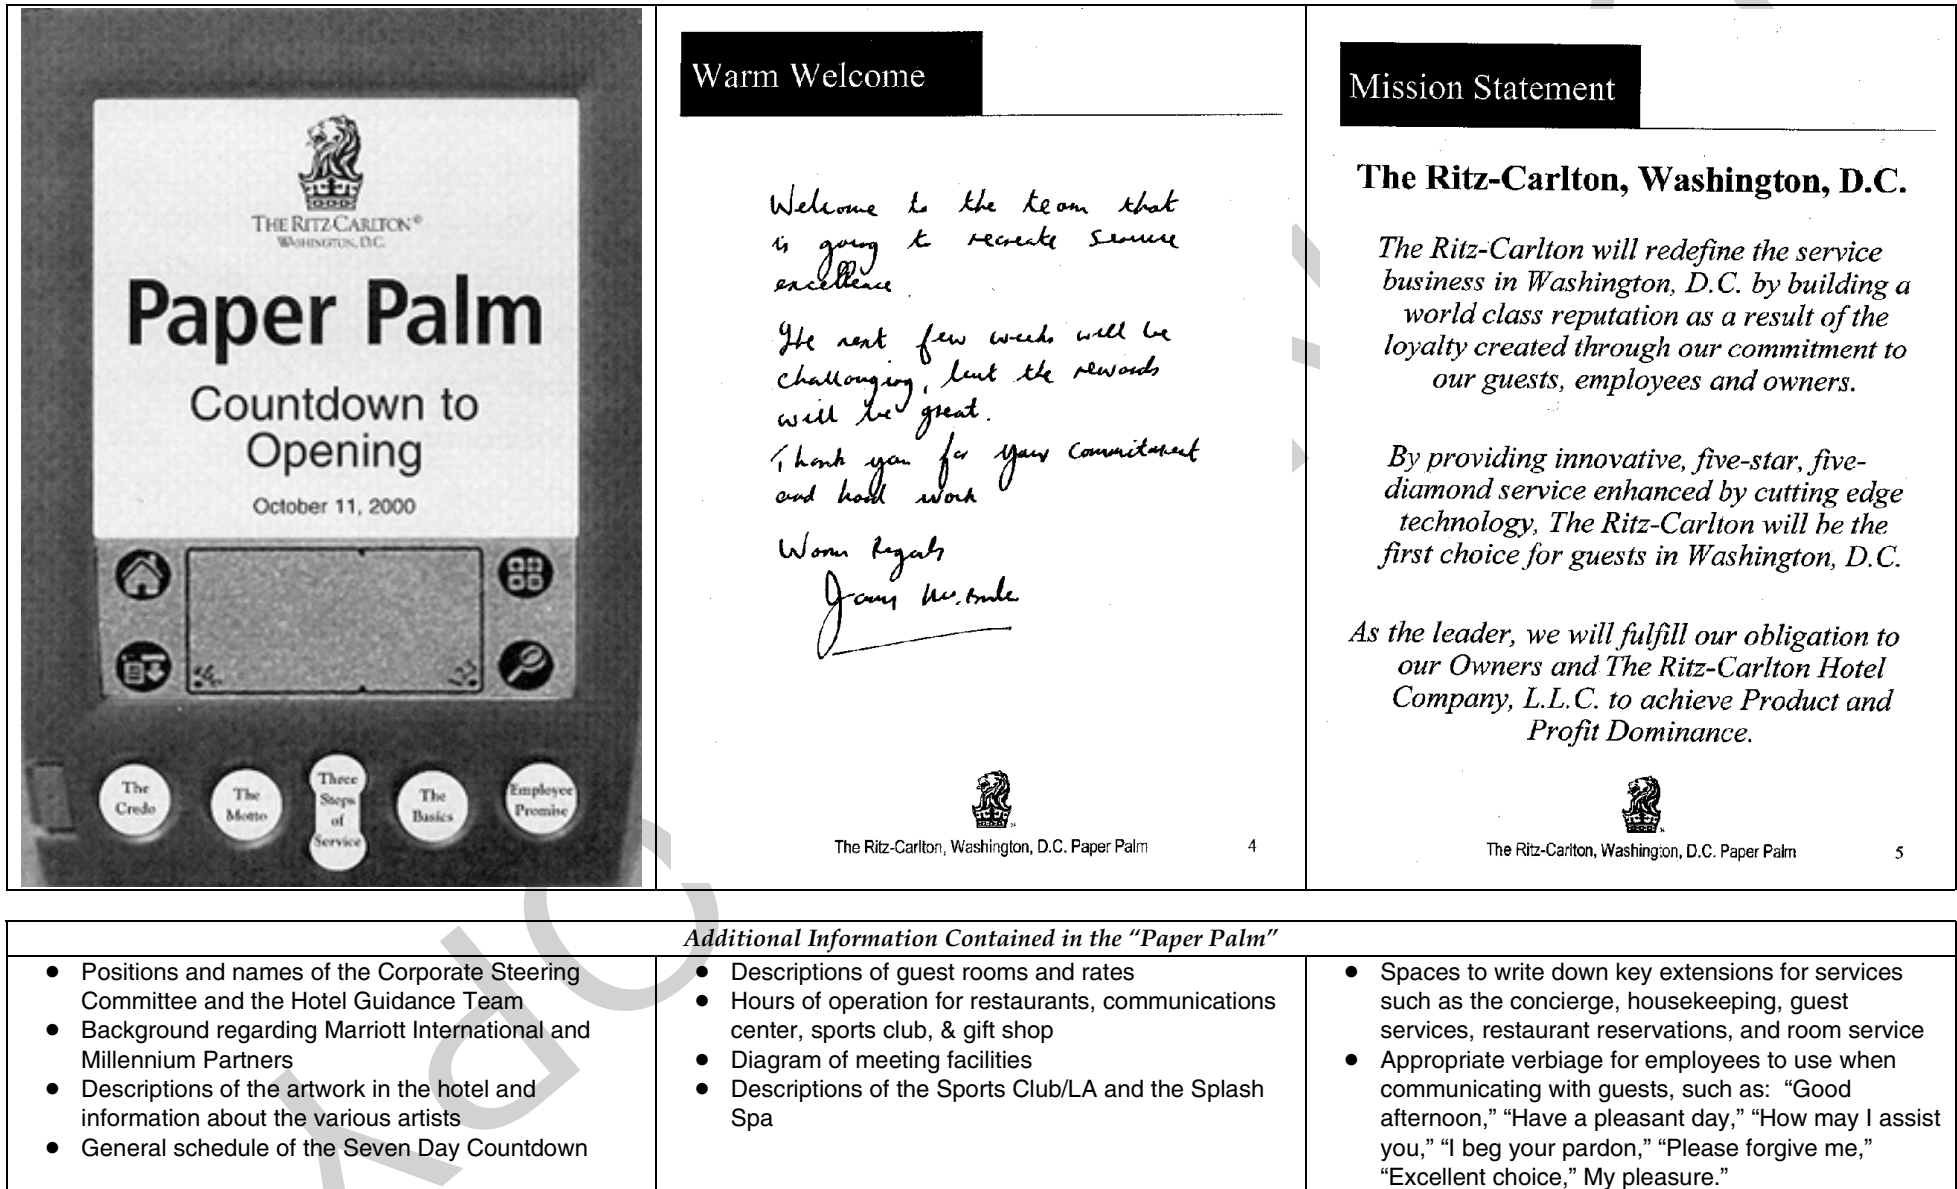 THE RITZ-CARLTON®
WASHINGTON, D.C.
Paper Palm
Countdown to
Opening
October 11, 2000
The
Credo
The
Motto
Three
Steps
of
Service
The
Basics
Employee
Promise
Warm Welcome
Welcome to the team that
is going to recreate service
excellence.
The next few weeks will be
challenging, but the rewards
will be great.
Thank you for your commitment
and hard work
Warm Regards
The Ritz-Carlton, Washington, D.C. Paper Palm 4
Mission Statement
The Ritz-Carlton, Washington, D.C.
The Ritz-Carlton will redefine the service
business in Washington, D.C. by building a
world class reputation as a result of the
loyalty created through our commitment to
our guests, employees and owners.
By providing innovative, five-star, five-
diamond service enhanced by cutting edge
technology, The Ritz-Carlton will be the
first choice for guests in Washington, D.C.
As the leader, we will fulfill our obligation to
our Owners and The Ritz-Carlton Hotel
Company, L.L.C. to achieve Product and
Profit Dominance.
The Ritz-Carlton, Washington, D.C. Paper Palm 5
Additional Information Contained in the “Paper Palm”
● Positions and names of the Corporate Steering
Committee and the Hotel Guidance Team
● Background regarding Marriott International and
Millennium Partners
● Descriptions of the artwork in the hotel and
information about the various artists
● General schedule of the Seven Day Countdown
● Descriptions of guest rooms and rates
● Hours of operation for restaurants, communications
center, sports club, & gift shop
● Diagram of meeting facilities
● Descriptions of the Sports Club/LA and the Splash
Spa
● Spaces to write down key extensions for services
such as the concierge, housekeeping, guest
services, restaurant reservations, and room service
● Appropriate verbiage for employees to use when
communicating with guests, such as: “Good
afternoon,” “Have a pleasant day,” “How may I assist
you,” “I beg your pardon,” “Please forgive me,”
“Excellent choice,” My pleasure.”